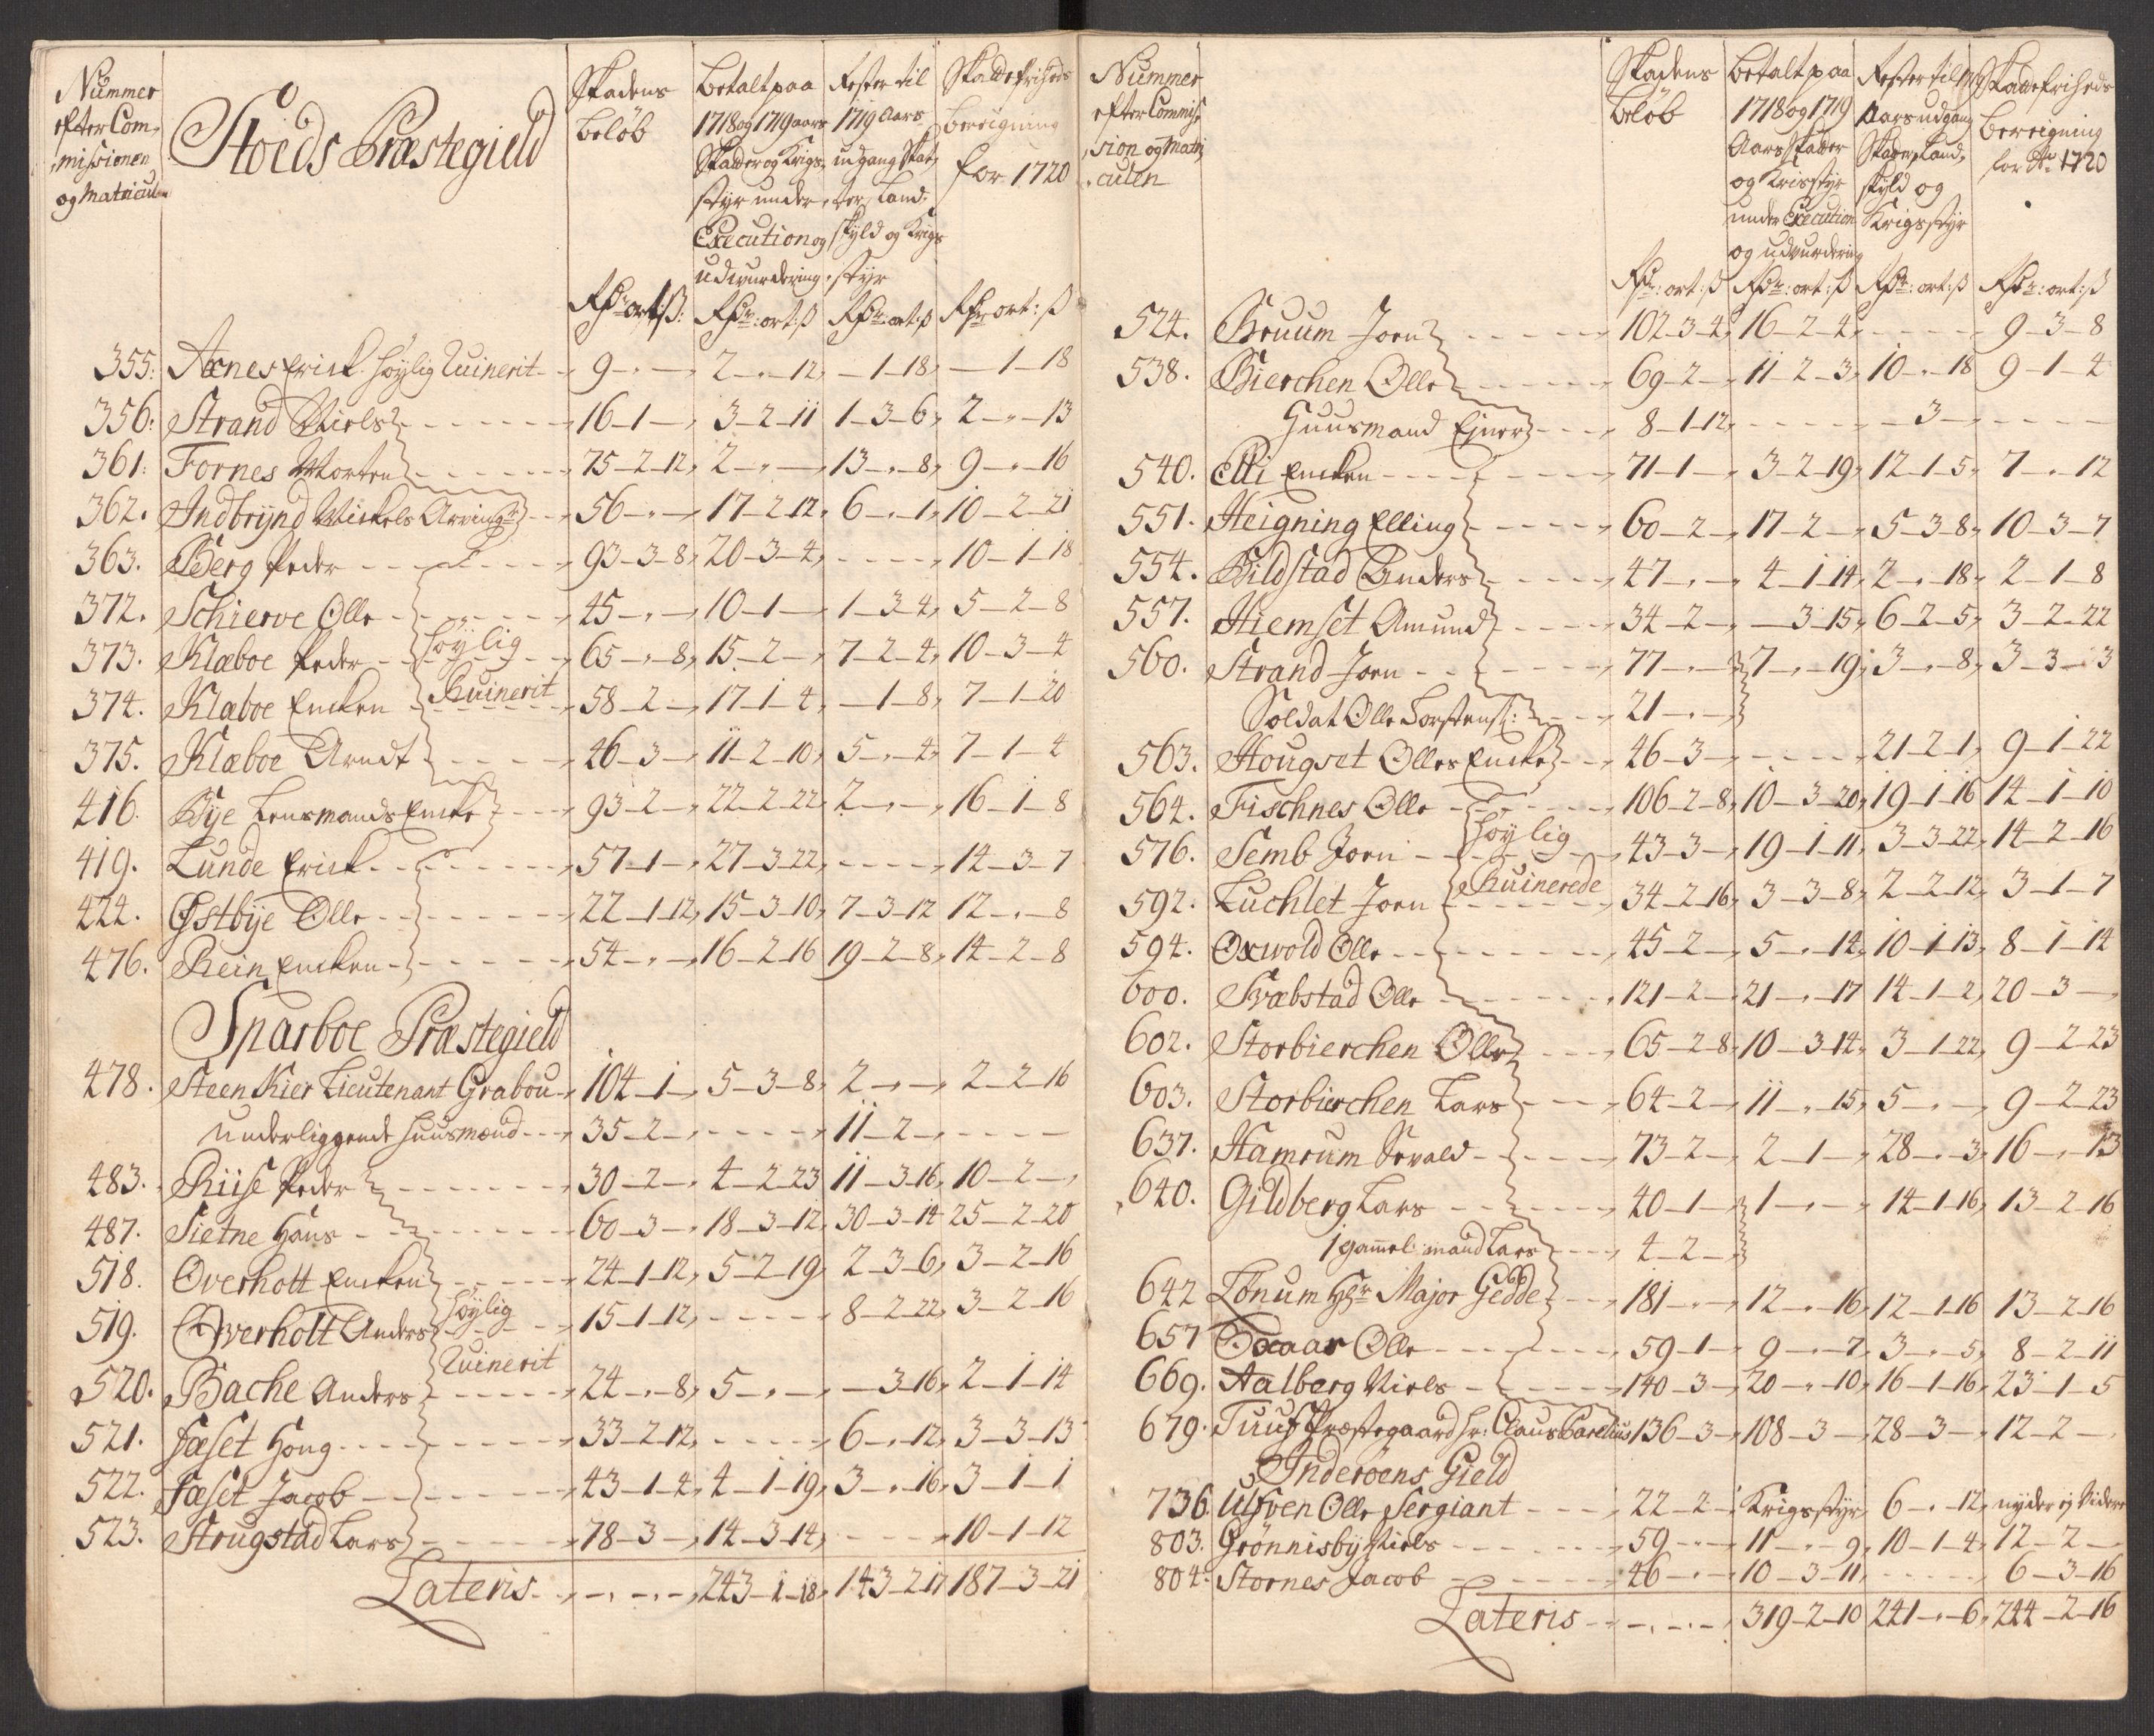 Nummer
efter Com-
missionen
og Matricul
Stoeds Præstegield
Skadens
beløb
Betalt paa
1718 og 1719 aars
Skatter og Krigs-
styr under
Execution og
udwurdering
Rester til
1719 Aars
udgang Skat-
ter, Land-
skyld og Krigs
styr
Skattefriheds
bereigning
for 1720
Rdr: ort: ß: Rdr: ort: ß Rdr: ort: ß Rdr: ort: ß
355: Axnes Erick höylig Ruinerit 9 - . - 2 - . - 12 - 1 - 18 - 1 - 18
356: Strand Niels 16 - 1 - 3 - 2 - 11 1 - 3 - 6 2 - . - 13
361: Fornes Morten 75 - 2 - 12 2 - . - 13 - . - 8 9 - . - 16
362. Indbrÿnd Mickels Arvinger 56 - . - 17 - 2 - 12 6 - . - 1 10 - 2 - 21
363. Berg Peder 93 - 3 - 8 20 - 3 - 4 - - - - 10 - 1 - 18
372. Schierve Olle 45 - . - 10 - 1 - 1 - 3 - 4 5 - 2 - 8
höylig
373. Klæboe Peder 65 - . - 8 15 - 2 - 7 - 2 - 4 10 - 3 - 4
Ruinerit
374. Klæboe Encken 58 - 2 - 17 - 1 - 4 - 1 - 8 7 - 1 - 20
375. Klæboe Arndt 46 - 3 - 11 - 2 - 10 5 - . - 4 7 - 1 - 4
416. Bye Lensmands Encke 93 - 2 - 22 - 2 - 22 2 - . - 16 - 1 - 8
419. Lunde Erick 57 - 1 - 27 - 3 - 22 - - - - 14 - 3 - 7
424. Østbÿe Olle 22 - 1 - 12 15 - 3 - 10 7 - 3 - 12 12 - . - 8
476. Rein Encken 54 - . - 16 - 2 - 16 19 - 2 - 8 14 - 2 - 8
Sparboe Præstegield
478. Steen Kier Lieutenant Grabou 104 - 1 - 5 - 3 - 8 2 - . - 2 - 2 - 16
Underliggende huusmænd 35 - 2 - - - - - 11 - 2 - - - - -
483. Riise Peder 30 - 2 - 4 - 2 - 23 11 - 3 - 16 10 - 2 -
487. Sietne Hans 60 - 3 - 18 - 3 - 12 30 - 3 - 14 25 - 2 - 20
518. Overholt Encken 24 - 1 - 12 5 - 2 - 19 2 - 3 - 6 3 - 2 - 16
höylig
519. Overholt Anders 15 - 1 - 12 - - - - 8 - 2 - 22 3 - 2 - 16
Ruinerit
520. Bache Anders 24 - . - 8 5 - . - - 3 - 16 2 - 1 - 14
521. Fæset Houg 33 - 2 - 12 - - - - 6 - . - 12 3 - 3 - 13
522. Fæset Jacob 43 - 1 - 4 4 - 1 - 19 3 - . - 16 3 - 1 - 1
523. Strugstad Lars 78 - 3 - 14 - 3 - 14 - - - - 10 - 1 - 12
Lateris - . - . - 243 - 1 - 18 143 - 2 - 17 187 - 3 - 21
Nummer
efter Commis-
sion og Matri
culen
Skadens
beløb
Betalt paa
1718 og 1719
Aars Skatter
og Krisstyr
under Execution
og udvurdering
Rester til 1719
Aars udgang
Skatter, Land-
skyld og
Krigsstyr
Skattefriheds
bereigning
for Ao 1720
Rdr: ort: ß Rdr: ort: ß Rdr: ort: ß Rdr: ort: ß
524. Bruum Joen 102 - 3 - 4 16 - 2 - 4 - - - - 9 - 3 - 8
538. Bierchen Olle 69 - 2 - 11 - 2 - 3 10 - . - 18 9 - 1 - 4
Huusmand Ejner 8 - 1 - 12 - - - - - 3 - - - - -
540. Elli Encken 71 - 1 - 3 - 2 - 19 12 - 1 - 5 7 - . - 12
551. Heigning Elling 60 - 2 - 17 - 2 - 5 - 3 - 8 10 - 3 - 7
554. Bildstad Anders 47 - . - 4 - 1 - 14 2 - . - 18 2 - 1 - 8
557. Hiemset Amund 34 - 2 - - 3 - 15 6 - 2 - 5 3 - 2 - 22
560. Strand Joen 77 - . - 7 - . - 19 3 - . - 8 3 - 3 - 3
Soldat Olle Torstens: 21 - . -
563. Hougset Olles Encke 46 - 3 - - - - - 21 - 2 - 1 9 - 1 - 22
564. Fischnes Olle 106 - 2 - 8 10 - 3 - 20 19 - 1 - 16 14 - 1 - 10
höylig
576. Semb Joen 43 - 3 - 19 - 1 - 11 3 - 3 - 22 14 - 2 - 16
Ruinerede
592. Luchlet Joen 34 - 2 - 16 3 - 3 - 8 2 - 2 - 12 3 - 1 - 7
594. Oxwold Olle 45 - 2 - 5 - . - 14 10 - 1 - 13 8 - 1 - 14
600. Sræbstad Olle 121 - 2 - 21 - . - 17 14 - 1 - 2 20 - 3 -
602. Storbierchen Olle 65 - 2 - 8 10 - 3 - 14 3 - 1 - 22 9 - 2 - 23
603. Storbierchen Lars 64 - 2 - 11 - . - 15 5 - . - 9 - 2 - 23
637. Hamrum Sevald 73 - 2 - 2 - 1 - 28 - . - 3 16 - . - 13
640. Gildberg Lars 40 - 1 - 1 - . - 14 - 1 - 16 13 - 2 - 16
1 gammel mand Lars 4 - 2 -
642 Lønum Hr Major Gedde 181 - . - 12 - . - 16 12 - 1 - 16 13 - 2 - 16
657 Oxaar Olle 59 - 1 - 9 - . - 7 3 - . - 5 8 - 2 - 11
669. Aalberg Niels 140 - 3 - 20 - . - 10 16 - 1 - 16 23 - 1 - 5
679. Tuuf Præstegaard Hr: Claus Parelius 136 - 3 - 108 - 3 - 28 - 3 - 12 - 2 -
Inderöens Gield
736. Ulfven Olle Sergiant 22 - 2 - Krigsstyr 6 - . - 12 nyder ej Videre
803. Grönnisbÿ Niels 59 - . - 11 - . - 9 10 - 1 - 4 12 - 2 -
804. Stornes Jacob 46 - . - 10 - 3 - 11 - - - - 6 - 3 - 16
Lateris - . - . - 319 - 2 - 10 241 - . - 6 244 - 2 - 16